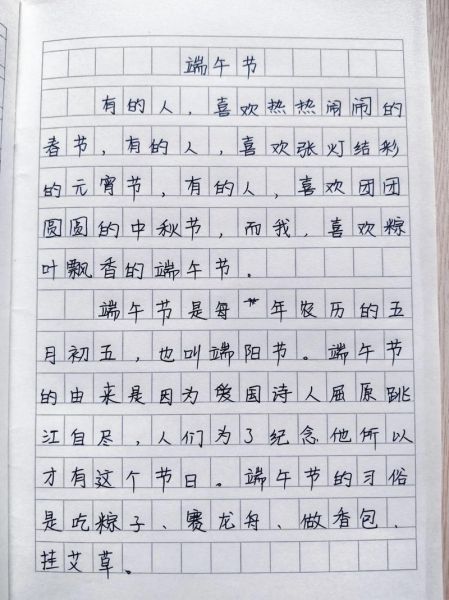 端午节
有的人，喜欢热热闹闹的
春节，有的人，喜欢张灯结彩
的元宵节，有的人，喜欢团团
圆圆的中秋节，而我，喜欢粽
叶飘香的端午节。
端午节是每年农历的五
月初五，也叫端阳节。端午节
的由来是因为爱国诗人屈原跳
江自尽，人们为了纪念他所以
才有这个节日。端午节的习俗
是吃粽子、赛龙舟、做香包、
挂艾草。